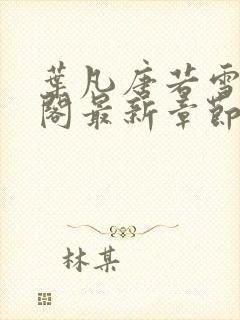 葉凡唐若雪
閣最新章節
林某